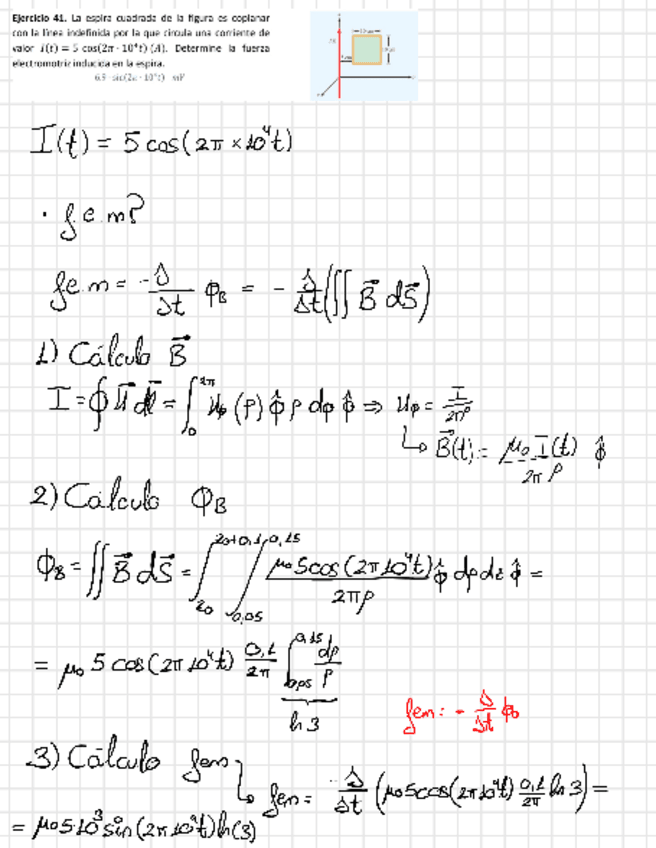 Ejercicio 41. La espira cuadrada de la figura es coplanar
con la línea indefinida por la que circula una corriente de
valor I(t) = 5 cos(2π · 10⁴t) (A). Determine la fuerza
electromotriz inducida en la espira.
6.9 · sin(2π · 10⁴t) mV
I(t) = 5 cos(2π × 10⁴t)
· f.e.m?
fem = -Δ/Δt ϕB = - Δ/Δt (∬ B⃗ dS⃗)
1) Cálculo B⃗
I = ∮ H⃗ dl⃗ = ∫₀^2π Hφ (ρ) φ̂ ρ dφ φ̂ ⇒ Hφ = I/2πρ
↳ B⃗(t) = μ₀ I(t)/2πρ φ̂
2) Cálculo ϕB
ϕB = ∬ B⃗ dS⃗ = ∫_z0^z0+0,1 ∫_0,05^0,15 μ₀5cos(2π10⁴t)/2πρ φ̂ dρ dz φ̂ =
= μ₀ 5 cos(2π10⁴t) 0,1/2π ∫_0,05^0,15 dρ/ρ
ln 3
fem: - Δ/Δt ϕB
3) Cálculo fem
↳ fem = -Δ/Δt (μ₀5cos(2π10⁴t) 0,1/2π ln 3) =
= μ₀5·10³ sin(2π10⁴t) ln(3)